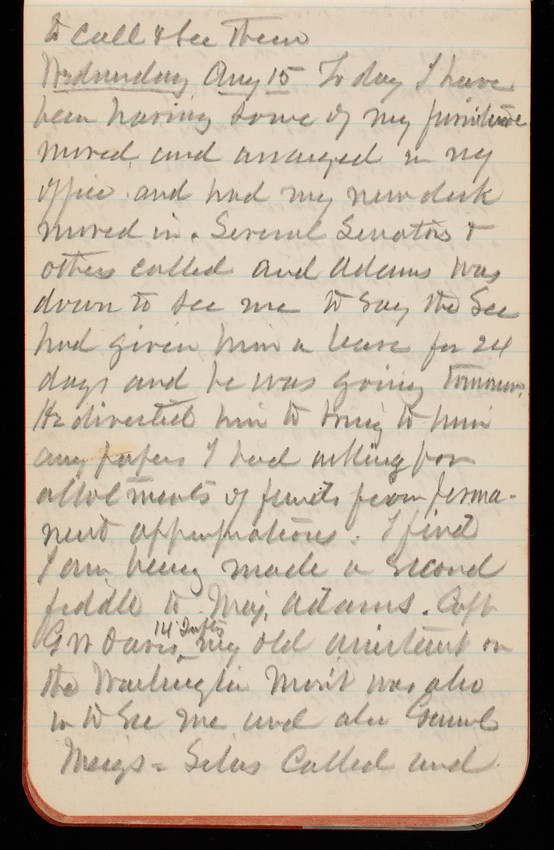 to call & see them
Wednesday Aug 15 Today I have
been having some of my furniture
moved and arranged in my
office and had my new desk
moved in. Several Senators &
others called and Adams was
down to see me to say the Sec
had given him a leave for 24
days and he was going tomorrow.
He directed him to bring to him
any papers I had asking for
allotments of funds from perma-
nent appropriations. I find
I am being made a second
fiddle to Maj. Adams. Capt
14 Infty
G W Davis, my old assistant on
the Washington Mon't was also
in to see me and also General
Meigs = Silas called and